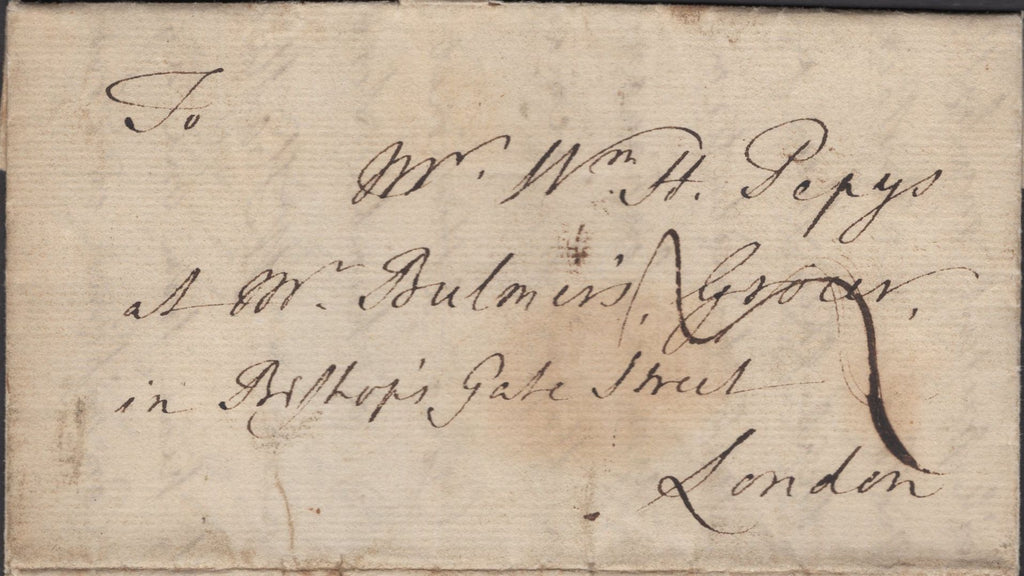 To
Mr. Wm. H. Pepys
at Mr. Bulmer's, Grocer,
in Bishop's Gate Street
London